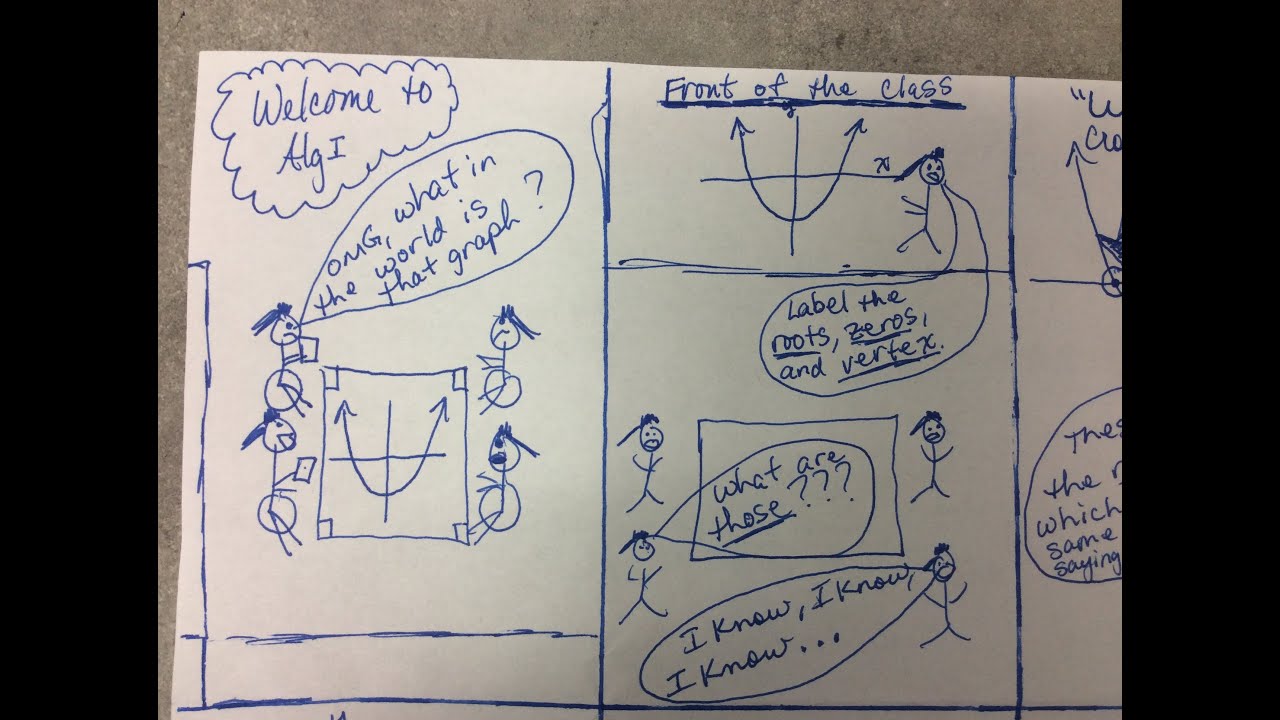 Welcome to
Alg I
OMG, what in
the world is
that graph?
Front of the Class
y
x
Label the
roots, zeros,
and vertex.
What are
those???
I know, I know,
I know...
Thes
the r
which
same
saying